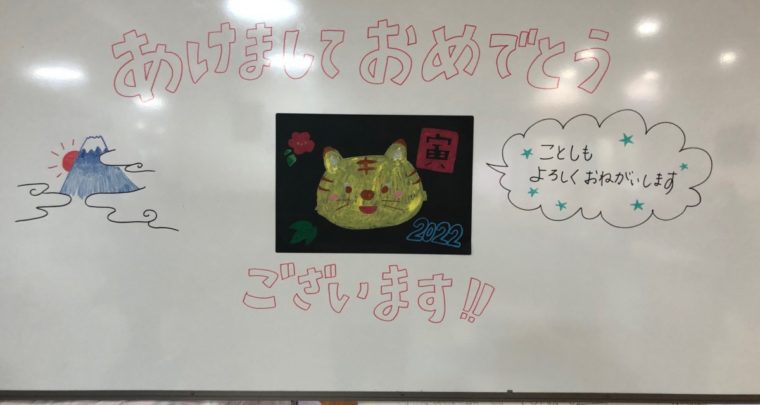 あけましておめでとう
寅
2022
ことしも
よろしくおねがいします
ございます!!